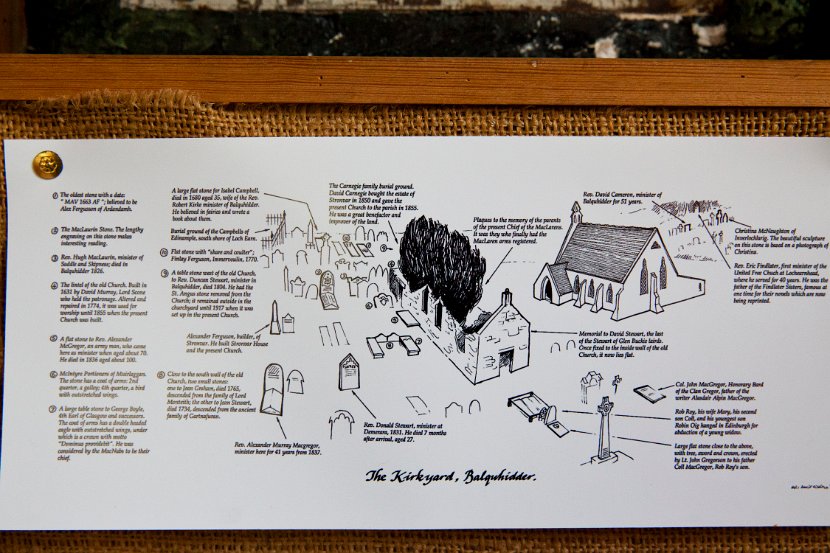 1 The oldest stone with a date:
" MAV 1663 AF "; believed to be
Alex Ferguson of Ardandamh.
2 The MacLaurin Stone. The lengthy
engraving on this stone makes
interesting reading.
3 Rev. Hugh MacLaurin, minister of
Suddie and Skipness; died in
Balquhidder 1826.
4 The lintel of the old Church. Built in
1631 by David Murray, Lord Scone
who held the patronage. Altered and
repaired in 1774, it was used for
worship until 1855 when the present
Church was built.
5 A flat stone to Rev. Alexander
McGregor, an army man, who came
here as minister when aged about 70.
He died in 1836 aged about 100.
6 McIntyre Portioners of Muirlaggan.
The stone has a coat of arms: 2nd
quarter, a galley; 4th quarter, a bird
with outstretched wings.
7 A large table stone to George Boyle,
4th Earl of Glasgow and successors.
The coat of arms has a double headed
eagle with outstretched wings, under
which is a crown with motto
"Dominus providebit". He was
considered by the MacNabs to be their
chief.
A large flat stone for Isabel Campbell,
died in 1680 aged 35, wife of the Rev.
Robert Kirke minister of Balquhidder.
He believed in fairies and wrote a
book about them.
Burial ground of the Campbells of
Edinample, south shore of Loch Earn.
Flat stone with "share and coulter":
Finlay Ferguson, Immeroulin, 1770.
9 A table stone west of the old Church,
to Rev. Duncan Stewart, minister in
Balquhidder, died 1804. He had the
St. Angus stone removed from the
Church; it remained outside in the
churchyard until 1917 when it was
set up in the present Church.
Alexander Ferguson, builder, of
Stronvar. He built Stronvar House
and the present Church.
Close to the south wall of the old
Church, two small stones:
one to Jean Graham, died 1765,
descended from the family of Lord
Monteith; the other to Jean Stewart,
died 1734, descended from the ancient
family of Gartnafuran.
Rev. Alexander Murray Macgregor,
minister here for 41 years from 1837.
The Carnegie family burial ground.
David Carnegie bought the estate of
Stronvar in 1850 and gave the
present Church to the parish in 1855.
He was a great benefactor and
improver of the land.
Plaques to the memory of the parents
of the present Chief of the MacLarens.
It was they who finally had the
MacLaren arms registered.
Rev. David Cameron, minister of
Balquhidder for 51 years.
Christina McNaughton of
Inverlochlarig. The beautiful sculpture
on this stone is based on a photograph of
Christina.
Rev. Eric Findlater, first minister of the
United Free Church at Lochearnhead,
where he served for 40 years. He was the
father of the Findlater Sisters, famous at
one time for their novels which are now
being reprinted.
Memorial to David Stewart, the last
of the Stewart of Glen Buckie lairds.
Once fixed to the inside wall of the old
Church, it now lies flat.
Rev. Donald Stewart, minister at
Demerara, 1831. He died 7 months
after arrival, aged 27.
Col. John MacGregor, Honorary Bard
of the Clan Gregor, father of the
writer Alasdair Alpin MacGregor.
Rob Roy, his wife Mary, his second
son Coll, and his youngest son
Robin Oig hanged in Edinburgh for
abduction of a young widow.
Large flat stone close to the above,
with tree, sword and crown, erected
by Lt. John Gregorson to his father
Coll MacGregor, Rob Roy's son.
The Kirkyard, Balquhidder.